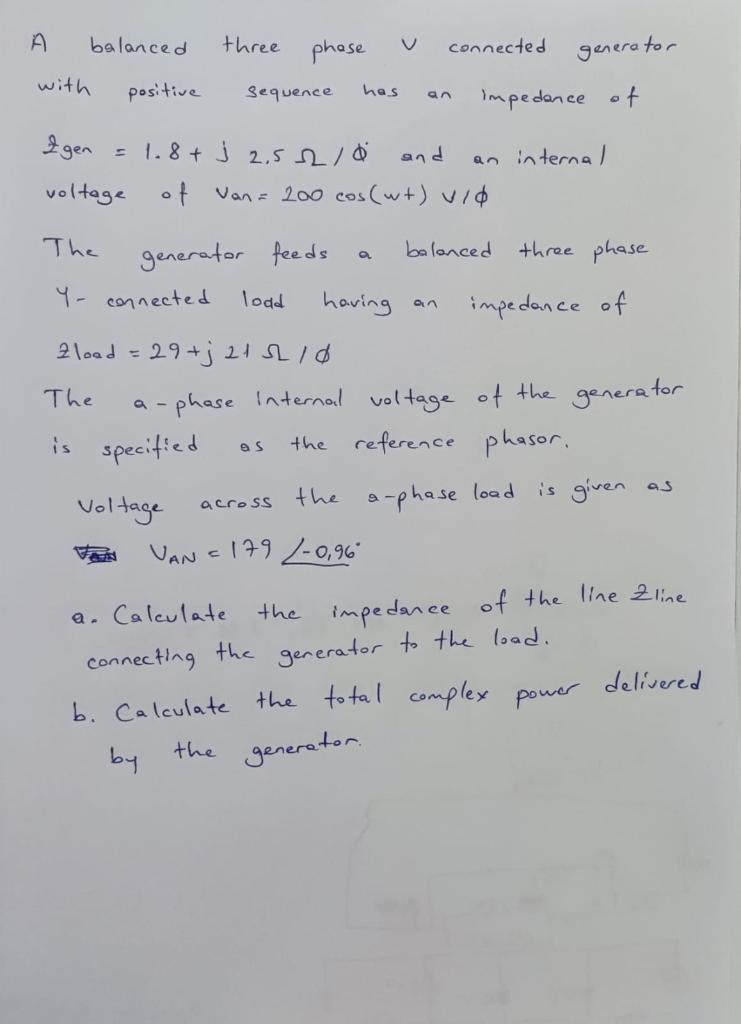 A balanced three phase Y connected generator
with positive sequence has an impedance of
Zgen = 1.8 + j 2,5 Ω/Φ and an internal
voltage of Van = 200 cos(wt) V/Φ
The generator feeds a balanced three phase
Y- connected load having an impedance of
Zload = 29 + j 21 Ω/Φ
The a-phase internal voltage of the generator
is specified as the reference phasor.
Voltage across the a-phase load is given as
VAN = 179 ∠-0,96°
a. Calculate the impedance of the line Zline
connecting the generator to the load.
b. Calculate the total complex power delivered
by the generator.